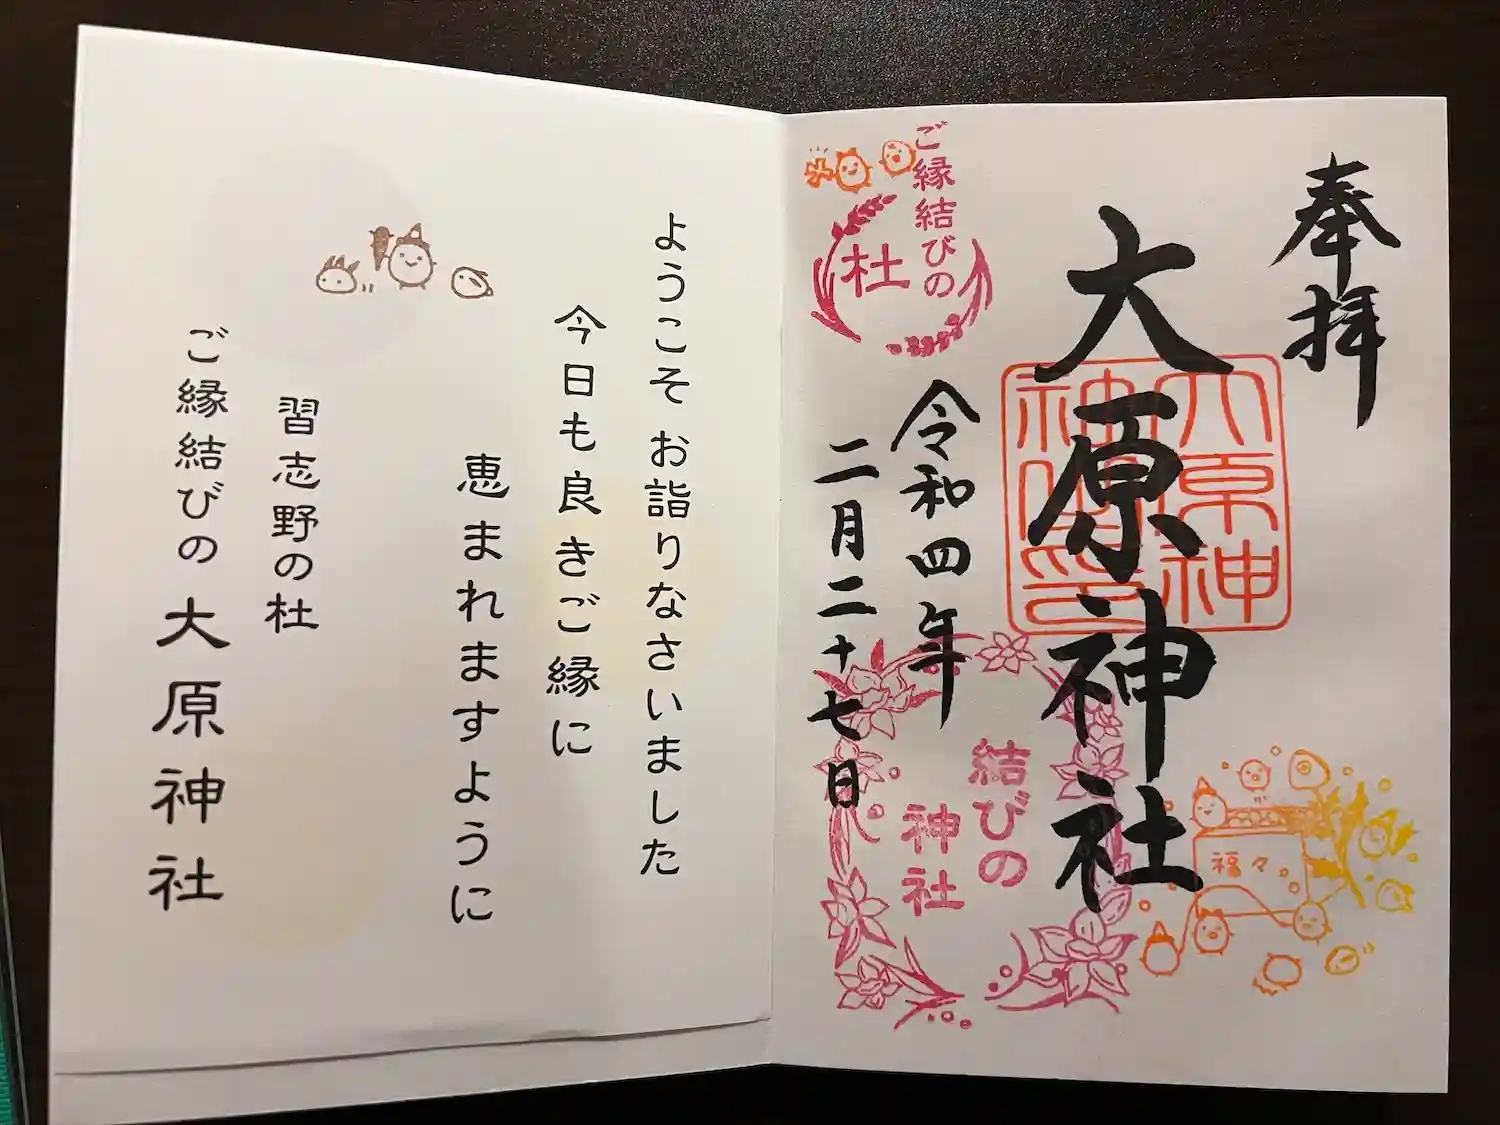 奉拝
大原神社
大原神
社神璽印
令和四年
二月二十七日
ご縁結びの
杜
結びの
神社
福々
ようこそ お詣りなさいました
今日も良きご縁に
恵まれますように
習志野の杜
ご縁結びの 大原神社